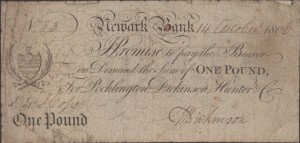 Newark Bank
14 October 1806
I Promise to pay the Bearer
on Demand the Sum of ONE POUND,
For Pocklington Dickinson, Hunter & Co.
One Pound
Dickinson